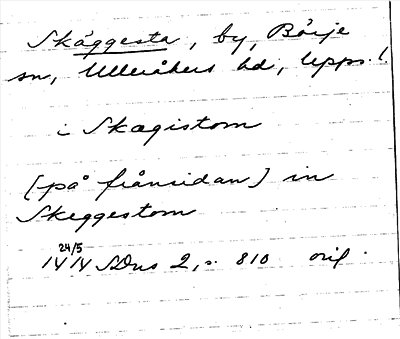 Skäggesta, by, Börje
sn, Ulleråkers hd, Upps. l.
i Skagistom
[på frånsidan] in
Skeggestom
24/5
1414 SDns 2, s. 810 orig.